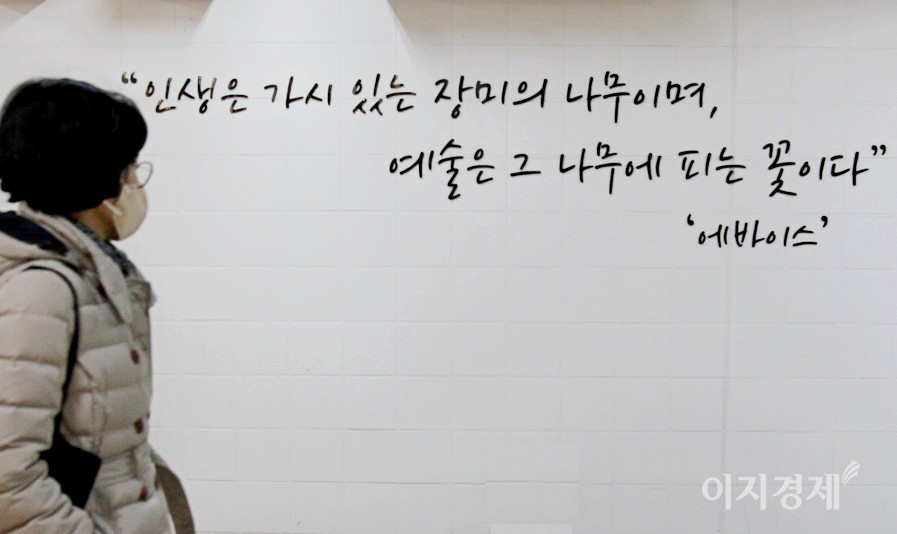 “인생은 가시 있는 장미의 나무이며,
예술은 그 나무에 피는 꽃이다”
‘에바이스’
이지경제